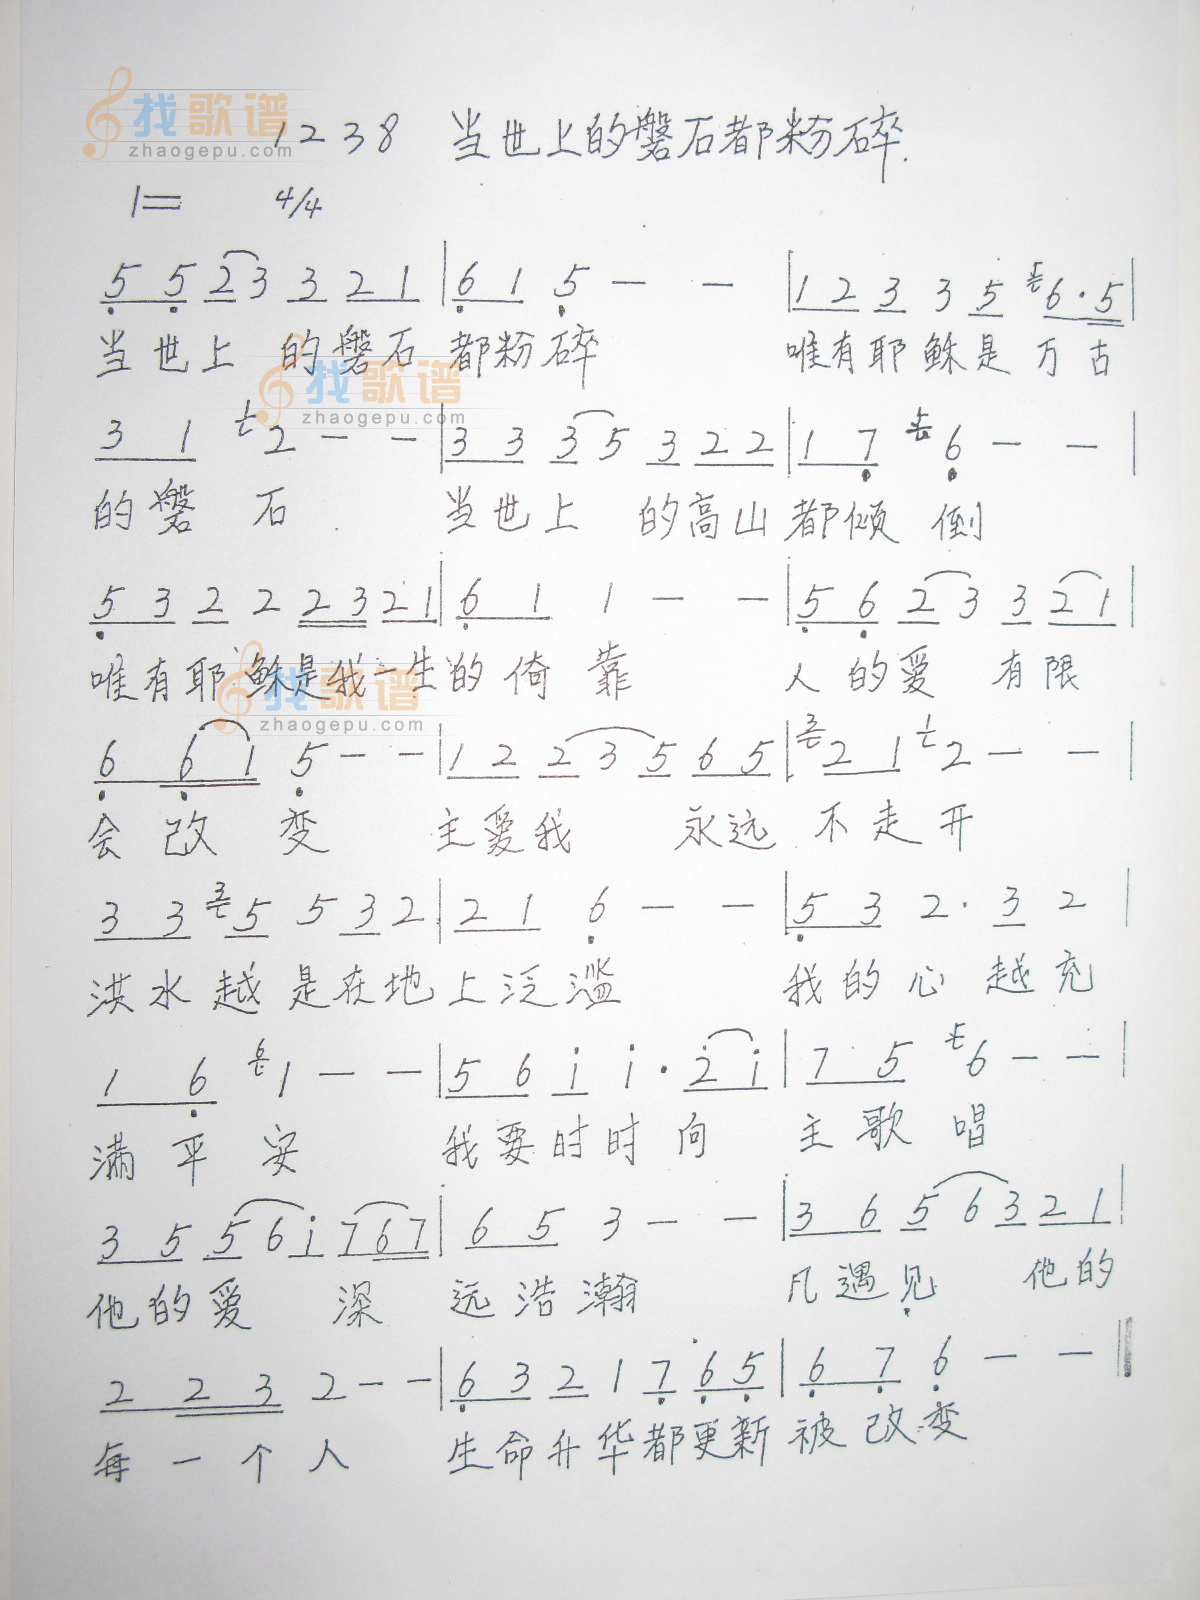 找歌谱
zhaogepu.com
1238 当世上的磐石都粉碎.
1= 4/4
5 5 2 3 3 2 1 | 6 1 5 - - | 1 2 3 3 5 5 6 · 5 |
当世上 的磐石 都粉碎 唯有耶稣是万古
找歌谱
zhaogepu.com
3 1 1 2 - - | 3 3 3 5 3 2 2 | 1 7 5 6 - - |
的磐 石 当世上 的高山 都倾 倒
5 3 2 2 2 3 2 1 | 6 1 1 - - | 5 6 2 3 3 2 1 |
唯有耶稣是我一生的倚靠 人的爱 有限
找歌谱
zhaogepu.com
6 6 1 5 - - | 1 2 2 3 5 6 5 | 3 2 1 1 2 - - |
会改 变 主爱我 永远 不走开
3 3 3 5 5 3 2 | 2 1 6 - - | 5 3 2 · 3 2 |
洪水越是在地上泛滥 我的心越充
1 6 6 1 - - | 5 6 i i · 2 i | 7 5 5 6 - - |
满平安 我要时时向 主歌唱
3 5 5 6 i 7 6 7 | 6 5 3 - - | 3 6 5 6 3 2 1 |
他的爱 深 远浩瀚 凡遇见 他的
2 2 3 2 - - | 6 3 2 1 7 6 5 | 6 7 6 - - ‖
每一个人 生命升华都更新 被改变